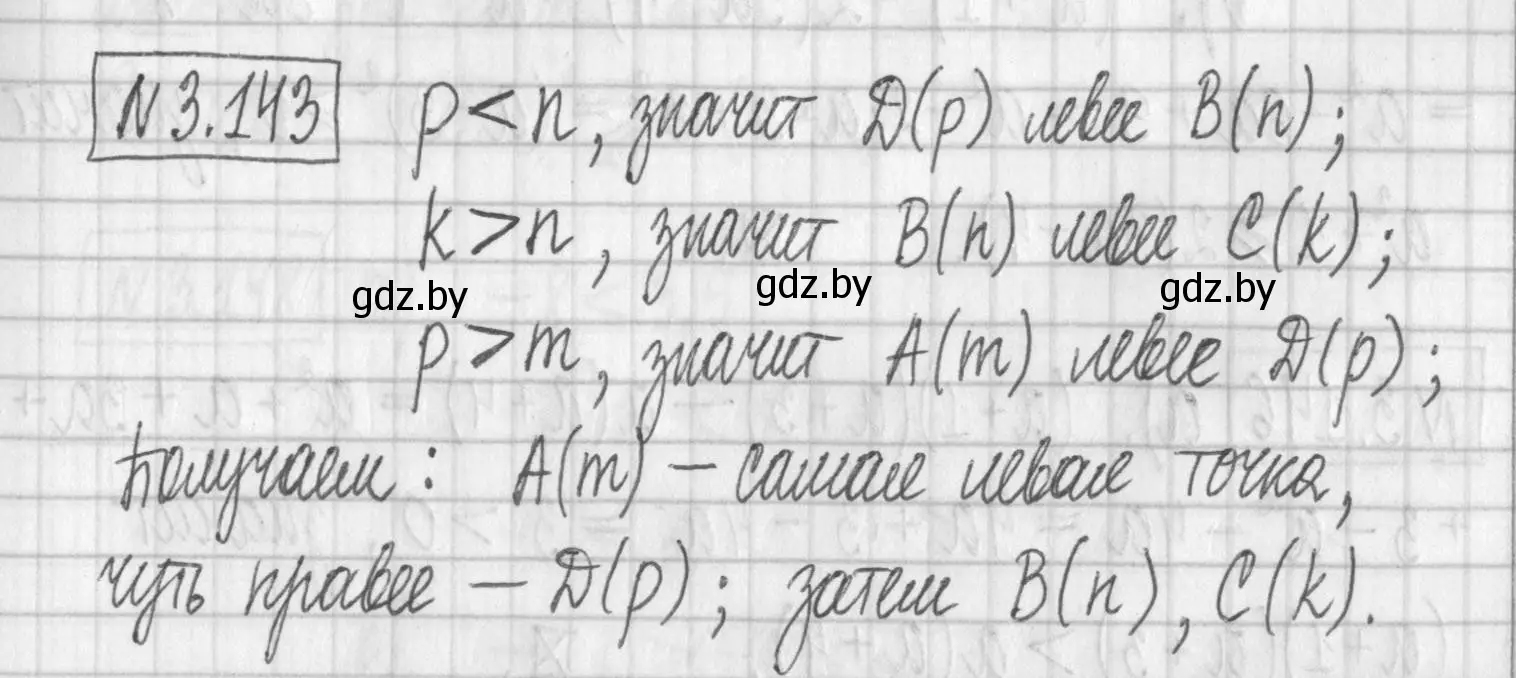 N 3.143 p < n, значит D(p) левее B(n);
k > n, значит B(n) левее C(k);
gdz.by gdz.by gdz.by
p > m, значит A(m) левее D(p);
Получаем: A(m) – самая левая точка,
чуть правее – D(p); затем B(n), C(k).